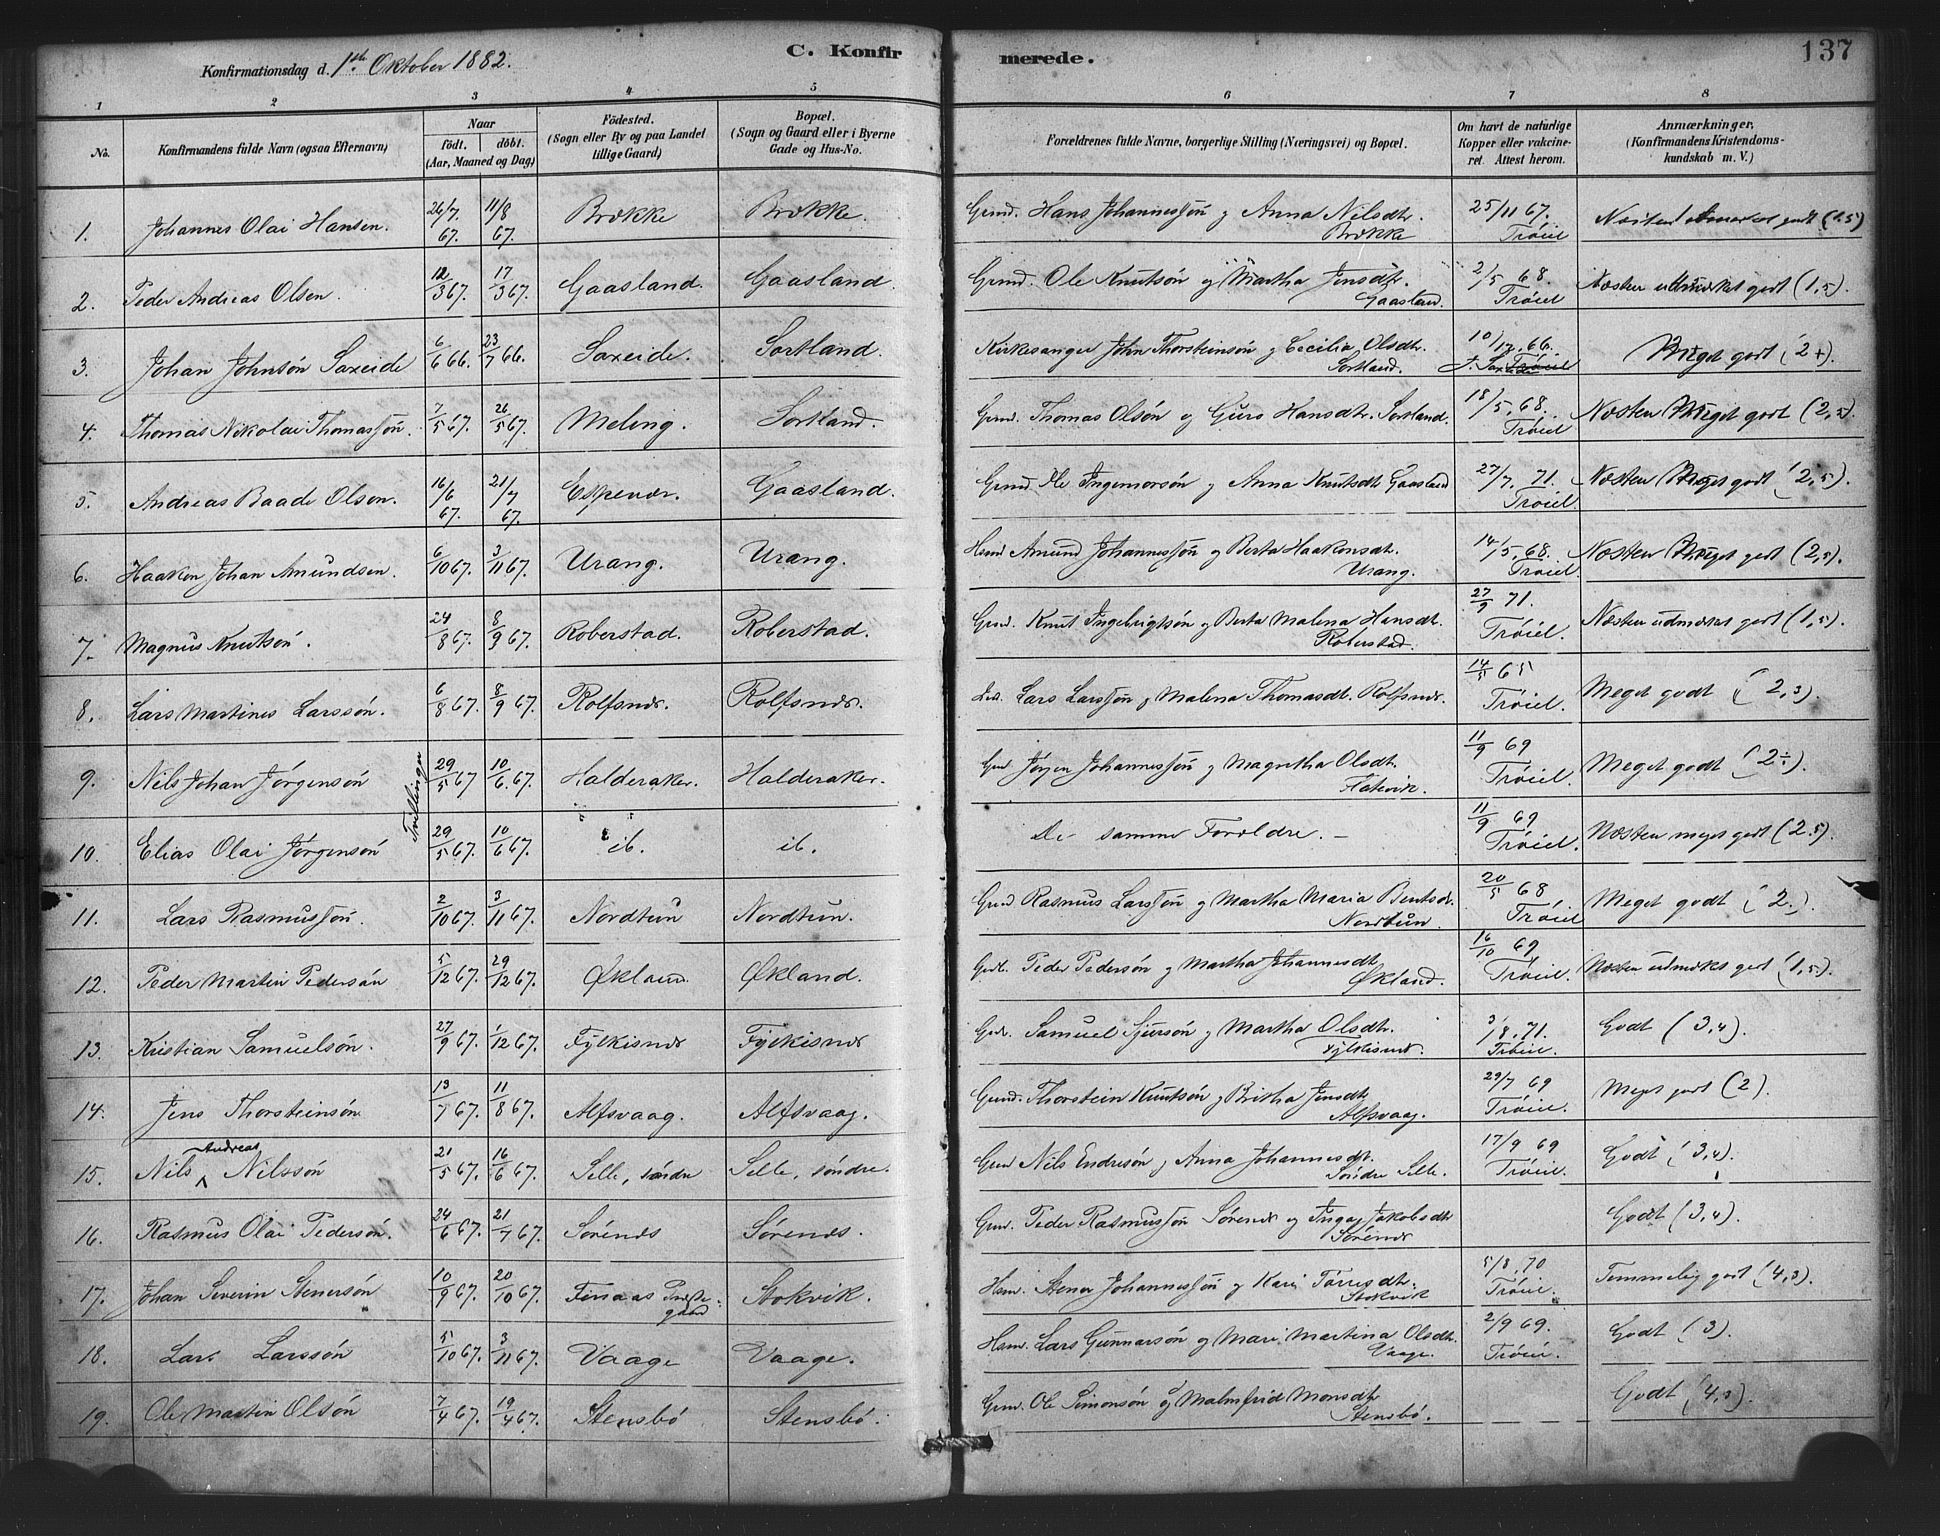 Konfirmationsdag d. 1ste Oktober 1882.
C. Konfirmerede.
137
1 2 3 4 5 6 7 8
No.
Konfirmandens fulde Navn (ogsaa Efternavn)
Naar
födt. döbt.
(Aar, Maaned og Dag)
Födested.
(Sogn eller By og paa Landet
tillige Gaard)
Bopæl.
(Sogn og Gaard eller i Byerne
Gade og Hus-No.
Forældrenes fulde Navne, borgerlige Stilling (Næringsvei) og Bopæl.
Om havt de naturlige
Kopper eller vakcine-
ret. Attest herom.
Anmærkninger.
(Konfirmandens Kristendoms-
kundskab m. V.)
1. Johannes Olai Hansen. 26/7 67. 11/8 67. Brække Brække. Grmd. Hans Johannessön og Anna Nilsdtr. Brække 25/11 67. Tröiel Næsten udmærket godt (1.5)
2. Peder Andreas Olsen. 12/3 67. 17/3 67. Gaasland. Gaasland. Grmd. Ole Knutsön og Martha Jensdtr. Gaasland. 2/5 68 Tröiel Næsten udmærket godt (1,5).
3. Johan Johnsön Saxeide 6/6 66. 23/7 66. Saxeide. Sortland. Kirkesanger John Thorsteinsön og Cecilia Olsdtr. Sortland. 10/12 66. Meget godt (2+).
4. Thomas Nikolai Thomassön. 7/5 67. 26/5 67. Meling. Sortland. Grmd. Thomas Olsön og Guro Hansdtr. Sortland. 18/5 68. Tröiel Næsten Meget godt (2,5).
5. Andreas Baade Olsen. 16/6 67. 21/7 67. Espevær. Gaasland. Grmd. Ole Ingemorsön og Anna Knutsdtr Gaasland 27/7. 71. Tröiel Næsten Meget godt (2,5).
6. Haakon Johan Amundsen. 6/10 67. 3/11 67. Urang. Urang. Hsmd Amund Johannessön og Berta Haakonsdtr. Urang. 14/5. 68. Tröiel. Næsten Meget godt (2,5).
7. Magnus Knutsön. 24/8 67. 8/9 67. Roberstad. Roberstad. Grmd. Knut Ingebrigtsön og Berta Malena Hansdtr. Roberstad. 27/9 71. Tröiel. Næsten udmærket godt (1,5).
8. Lars Martines Larssön. 6/8 67. 8/9 67. Rolfsnæs. Rolfsnæs. Lars Larssön og Malena Thomasdt. Rolfsnæs. 14/5 65 Tröiel. Meget godt (2,3)
9. Nils Johan Jörgensön Tvillinger 29/5 67 10/6. 67. Halderaker. Halderaker. Jörgen Johannessön og Magretha Olsdtr. Flatevik. 11/9 69 Tröiel. Meget godt (2÷).
10. Elias Olai Jörgensön 29/5 67. 10/6 67. ib. ib. De samme Forældre. — 11/9 69 Tröiel. Næsten meget godt (2.5).
11. Lars Rasmussön. 2/10 67. 3/11 67. Nordtun Nordtun. Grmd Rasmus Larssön og Martha Maria Bentsdr. Nordtun. 20/5 68 Tröiel Meget godt (2.).
12. Peder Martin Pedersön 5/12 67. 29/12 67. Økland Økland. Peder Pedersön og Martha Johannesdt. Økland. 16/10 69 Tröiel. Næsten udmærket godt (1,5).
13. Kristian Samuelsön. 27/9 67. 1/12 67. Fylkisnæs Fylkisnæs Samuel Sjursön og Martha Olsdtr. Fylkisnæs. 3/8. 71. Tröiel. Godt (3,4).
14. Jens Thorsteinsön 13/7 67. 11/8 67. Alfsvaag. Alfsvaag. Grmd. Thorstein Knutsön og Britha Jensdtr Alfsvaag. 29/7 69 Tröiel. Meget godt (2).
15. Nils Andreas Nilssön 21/5 67. 16/6 67. Selle, söndre Selle, söndre. Grmd Nils Endresön og Anna Johannesdt. Söndre Selle. 17/9 69 Tröiel. Godt (3,4).
16. Rasmus Olai Pedersön. 24/6 67. 21/7 67. Sörenæs Sörenæs. Grmd. Peder Rasmussön Sörenæs og Inga Jakobsdtr Sörenæs Godt (3,4).
17. Johan Severin Stenersön 10/9 67. 20/10 67. Finaas Præstegaard Stokvik. Hsm. Stener Johannessön og Kari Törresdtr. Stokvik 5/8. 70 Tröiel. Temmelig godt (4,3).
18. Lars Larssön 5/10 67. 3/11 67. Vaage Vaage. Hsm. Lars Gunnarsön og Mari Martina Olsdtr. Vaage. 2/9 69. Tröiel. Godt (3)
19. Ole Martin Olsön 7/4 67. 19/4 67. Stensbö Stensbö. Grmd. Ole Simonsön og Malmfrid Monsdtr Stensbö. Godt (4,3).